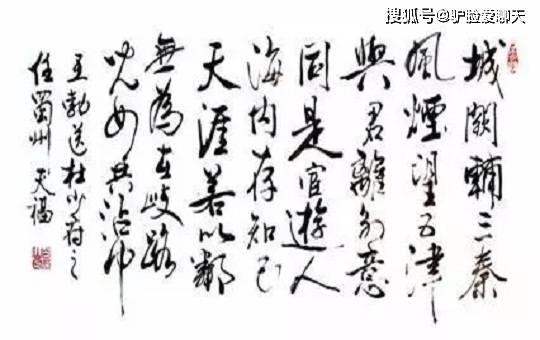 搜狐号@驴脸爱聊天
城闕輔三秦
風煙望五津
與君離别意
同是宦遊人
海内存知己
天涯若比鄰
無為在歧路
児女共沾巾
王勃送杜少府之
任蜀州 天福